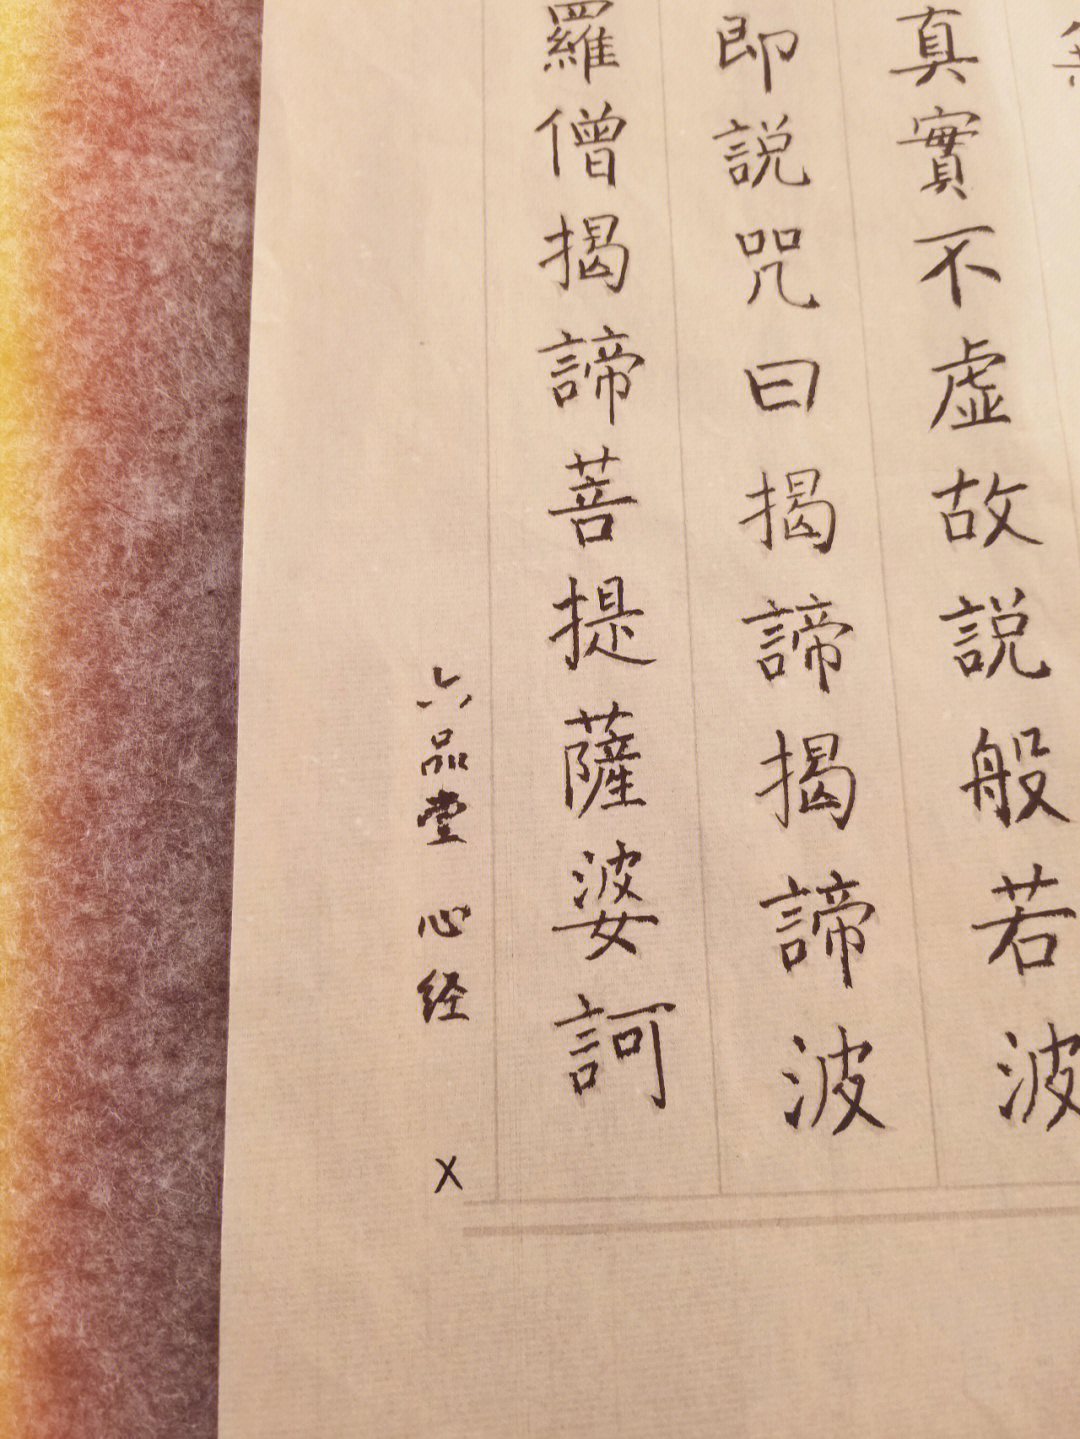 真實不虛故説般若波
即説咒曰揭諦揭諦波
羅僧揭諦菩提薩婆訶
六品堂 心经 X